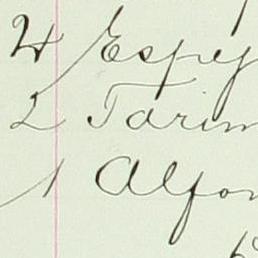 4 Espej
2 Tarim
1 Alfon